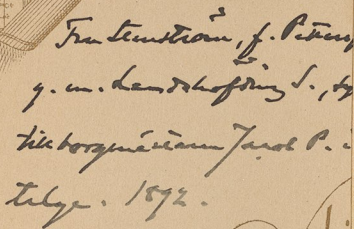 Fru Stenström, f. Peterg
g. m. Landshöfding S., sy
till borgmästaren Jacob P. i
telge. 1892.